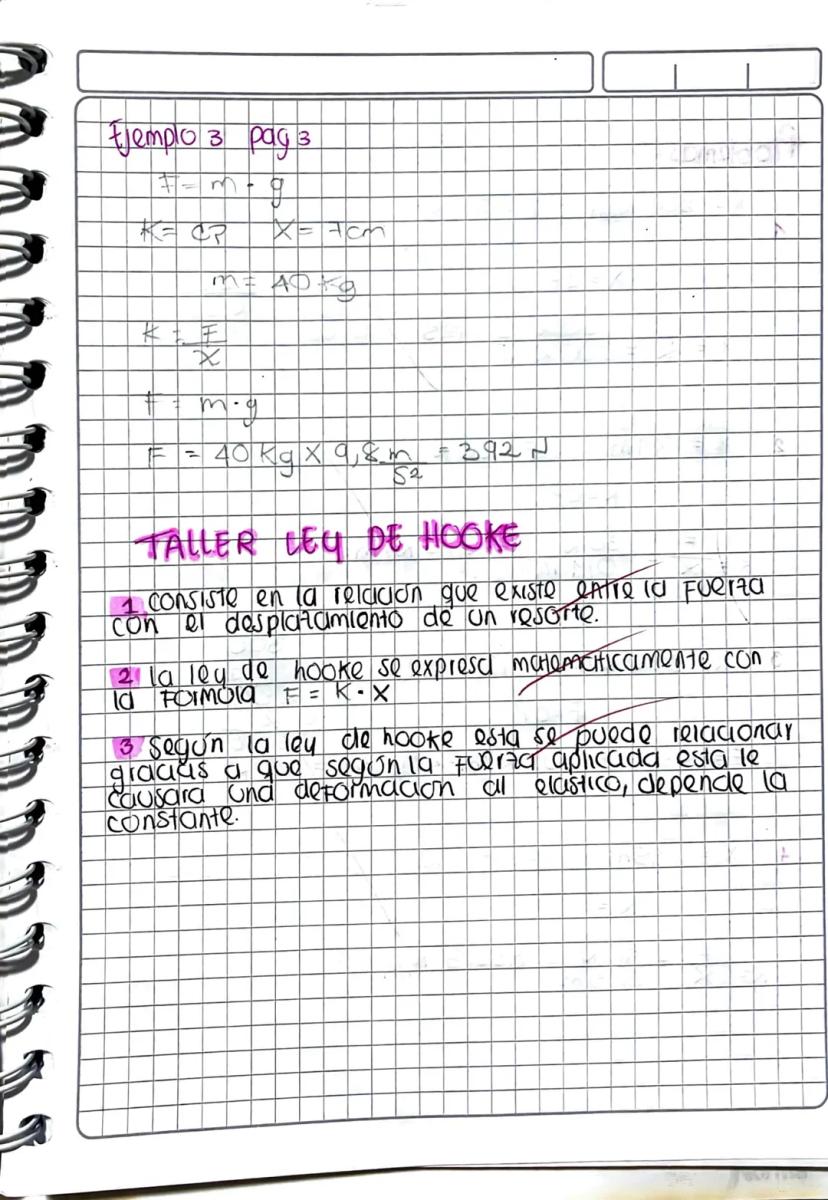 Ejemplo 3 pag 3
F = m · g
K = ¿? X = 7cm
m = 40 kg
K = F
X
F = m · g
F = 40 Kg X 9,8 m = 392 N
S²
TALLER LEY DE HOOKE
1 consiste en la relación que existe entre la Fuerza
con el desplazamiento de un resorte.
2 la ley de hooke se expresa matematicamente con
la Formula F = K · X
3 según la ley de hooke esta se puede relacionar
gracias a que según la Fuerza aplicada esta le
causara una deformacion al elastico, depende la
constante.